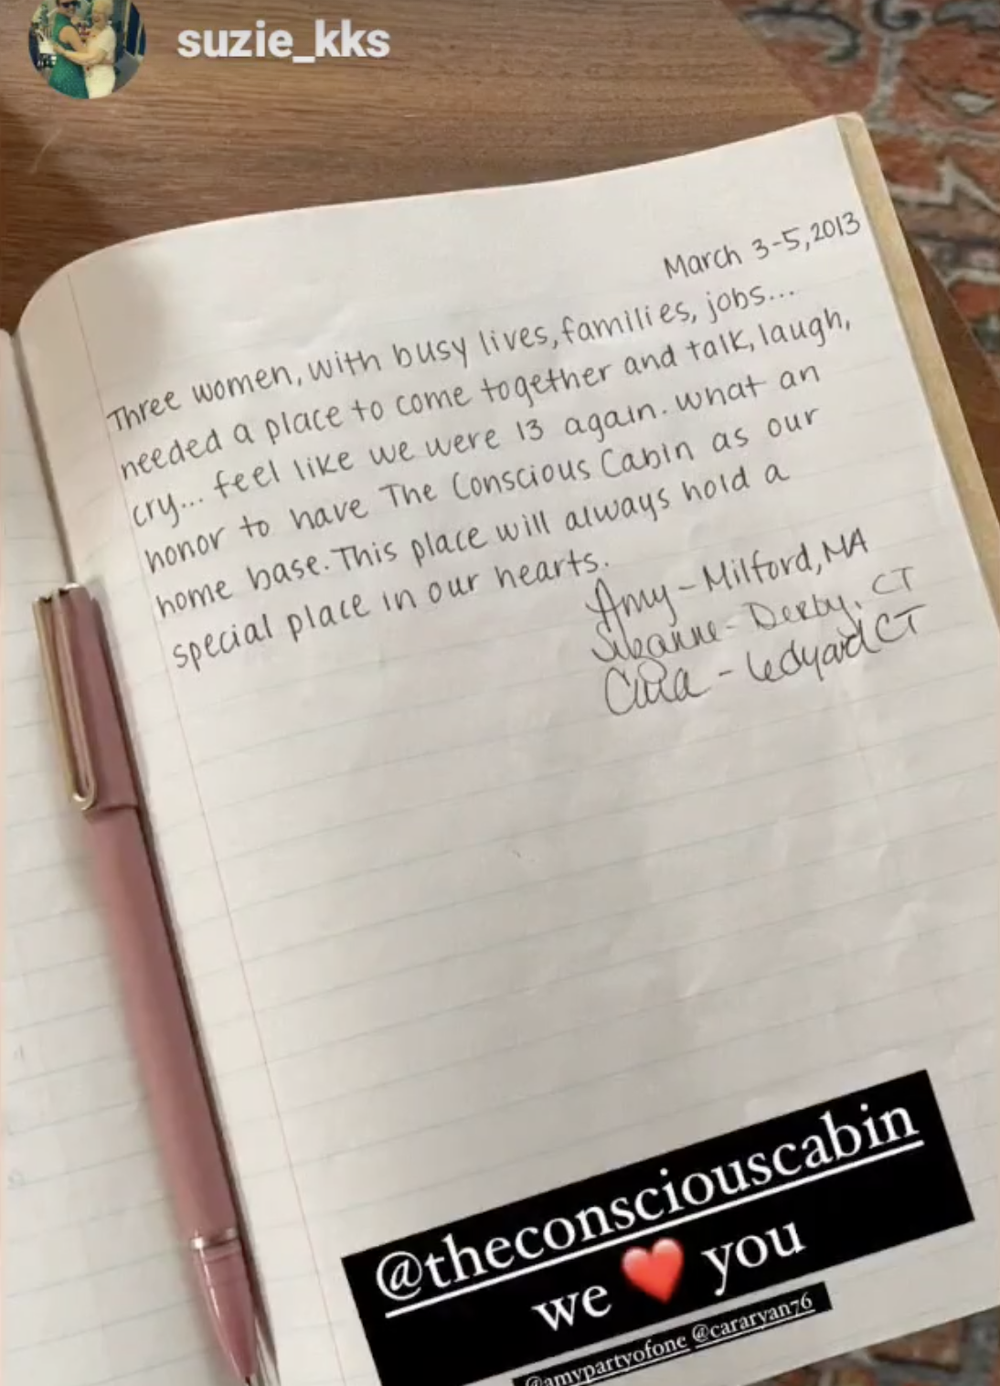 suzie_kks
March 3-5, 2013
Three women, with busy lives, families, jobs...
needed a place to come together and talk, laugh,
cry... feel like we were 13 again. What an
honor to have The Conscious Cabin as our
home base. This place will always hold a
special place in our hearts.
Amy - Milford, MA
Suzanne - Derby, CT
Cara - Ledyard CT
@theconsciouscabin
we ❤️ you
@amypartyofone @cararyan76